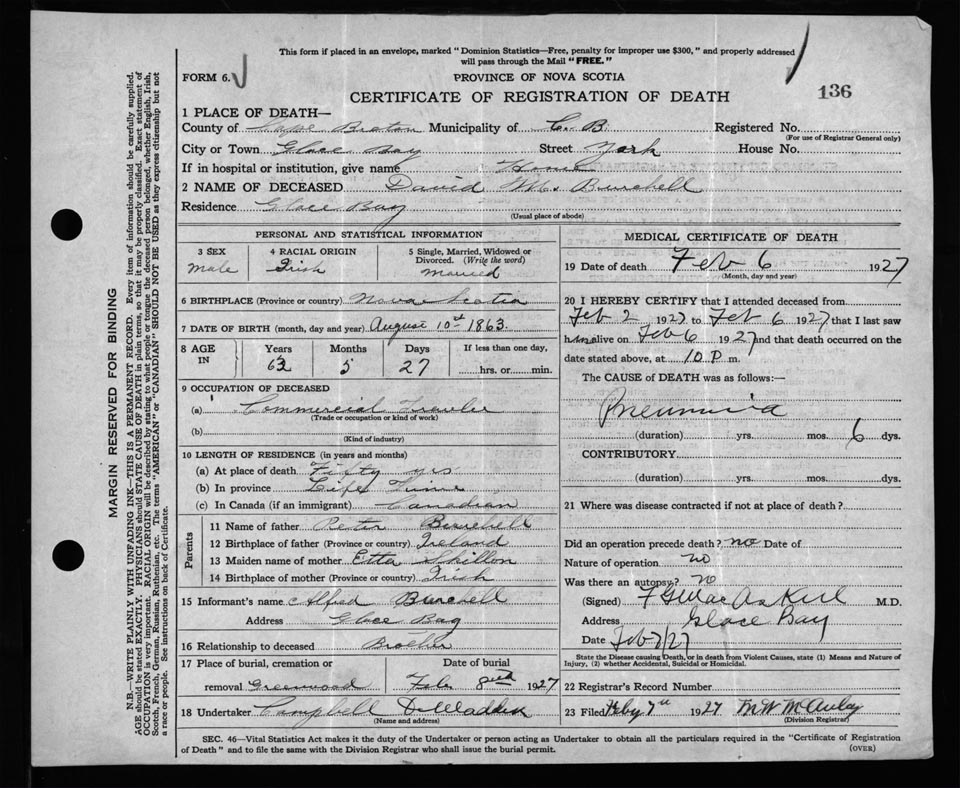 This form if placed in an envelope, marked "Dominion Statistics—Free, penalty for improper use $300," and properly addressed
will pass through the Mail "FREE."
FORM 6.
PROVINCE OF NOVA SCOTIA
CERTIFICATE OF REGISTRATION OF DEATH
136
1 PLACE OF DEATH—
County of Cape Breton Municipality of C. B. Registered No.
(For use of Registrar General only)
City or Town Glace Bay Street York House No.
If in hospital or institution, give name Home
2 NAME OF DECEASED David M. Burchell
Residence Glace Bay
(Usual place of abode)
PERSONAL AND STATISTICAL INFORMATION
3 SEX
Male
4 RACIAL ORIGIN
Irish
5 Single, Married, Widowed or
Divorced. (Write the word)
married
6 BIRTHPLACE (Province or country) Nova Scotia
7 DATE OF BIRTH (month, day and year) August 10th 1863.
8 AGE IN
Years Months Days If less than one day,
63 5 27 hrs. or min.
9 OCCUPATION OF DECEASED
(a) Commercial Traveler
(Trade or occupation or kind of work)
(b)
(Kind of industry)
10 LENGTH OF RESIDENCE (in years and months)
(a) At place of death Fifty yrs
(b) In province Life Time
(c) In Canada (if an immigrant) Canadian
Parents
11 Name of father Peter Burchell
12 Birthplace of father (Province or country) Ireland
13 Maiden name of mother Etta
14 Birthplace of mother (Province or country) Irish
15 Informant's name Alfred Burchell
Address Glace Bay
16 Relationship to deceased Brother
17 Place of burial, cremation or Date of burial
removal Greenwood Feb 8th 1927
18 Undertaker Campbell
(Name and address)
MEDICAL CERTIFICATE OF DEATH
19 Date of death Feb 6 1927
(Month, day and year)
20 I HEREBY CERTIFY that I attended deceased from
Feb 2 1927 to Feb 6 1927 that I last saw
him alive on Feb 6 1927 and that death occurred on the
date stated above, at 10 P m.
The CAUSE of DEATH was as follows:—
Pneumonia
(duration) yrs. mos. 6 dys.
CONTRIBUTORY
(duration) yrs. mos. dys.
21 Where was disease contracted if not at place of death?
Did an operation precede death? no Date of
Nature of operation no
Was there an autopsy? no
(Signed) M.D.
Address Glace Bay
Date Feb 7/27
State the Disease causing Death, or in death from Violent Causes, state (1) Means and Nature of
Injury, (2) whether Accidental, Suicidal or Homicidal.
22 Registrar's Record Number
23 Filed Feby 7th 1927 M W McAuley
(Division Registrar)
SEC. 46—Vital Statistics Act makes it the duty of the Undertaker or person acting as Undertaker to obtain all the particulars required in the "Certificate of Registration
of Death" and to file the same with the Division Registrar who shall issue the burial permit.
(OVER)
MARGIN RESERVED FOR BINDING
N.B.—WRITE PLAINLY WITH UNFADING INK—THIS IS A PERMANENT RECORD. Every item of information should be carefully supplied.
AGE should be stated EXACTLY. PHYSICIANS should STATE CAUSE OF DEATH in plain terms, so that it may be properly classified. Exact statement of
OCCUPATION is very important. RACIAL ORIGIN will be described by stating to what people or tongue the deceased person belonged, whether English, Irish,
Scotch, French, German, Russian, Ruthenian, etc. The terms "AMERICAN" or "CANADIAN" SHOULD NOT BE USED as they express citizenship but not
a race or people. See instructions on back of Certificate.